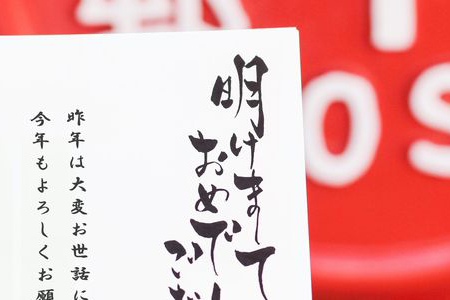 明けまして
おめで
ござ
昨年は大変お世話に
今年もよろしくお願
OS